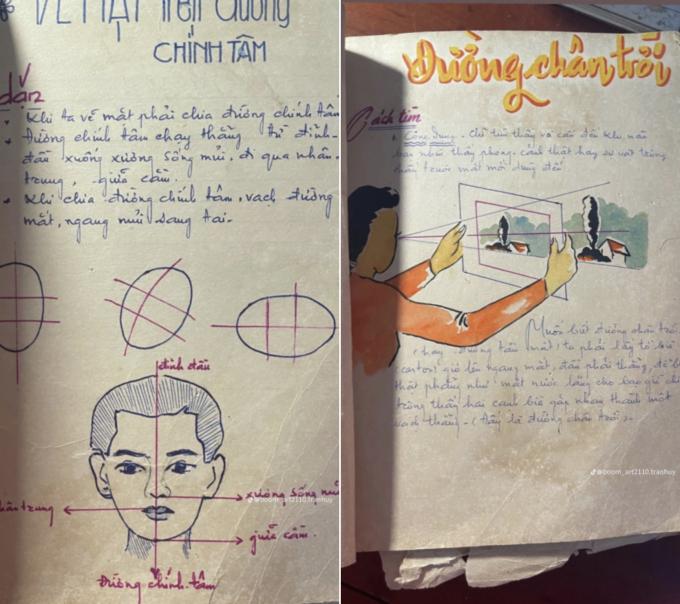 VẼ MẶT trên đường
CHÍNH TÂM
dẫn
Khi ta vẽ mặt phải chia đường chính tâm
Đường chính tâm chạy thẳng từ đỉnh
đầu xuống xương sống mũi, đi qua nhân
trung, giữa cằm.
Khi chia đường chính tâm, vạch đường
mắt, ngang mũi sang tai.
đỉnh đầu
xương sống mũi
nhân trung
giữa cằm
Đường chính tâm
@boom_art2110.tranhuy
Đường chân trời
Cách tìm
Công dụng. Chỉ tìm thấy và cần đến khi nào
bạn nhìn thấy phong cảnh thật hay sự vật trông
thấy trước mắt mới dùng đến
Muốn biết đường chân trời
(hay đường tầm mắt) ta phải lấy tờ bìa
(carton) giơ lên ngang mắt, đầu phải thẳng, để
thật phẳng như mặt nước lặng cho bao giờ chỉ
trông thấy hai cạnh bìa gập nhau thành một
vạch thẳng - (đấy là đường chân trời).
@boom_art2110.tranhuy